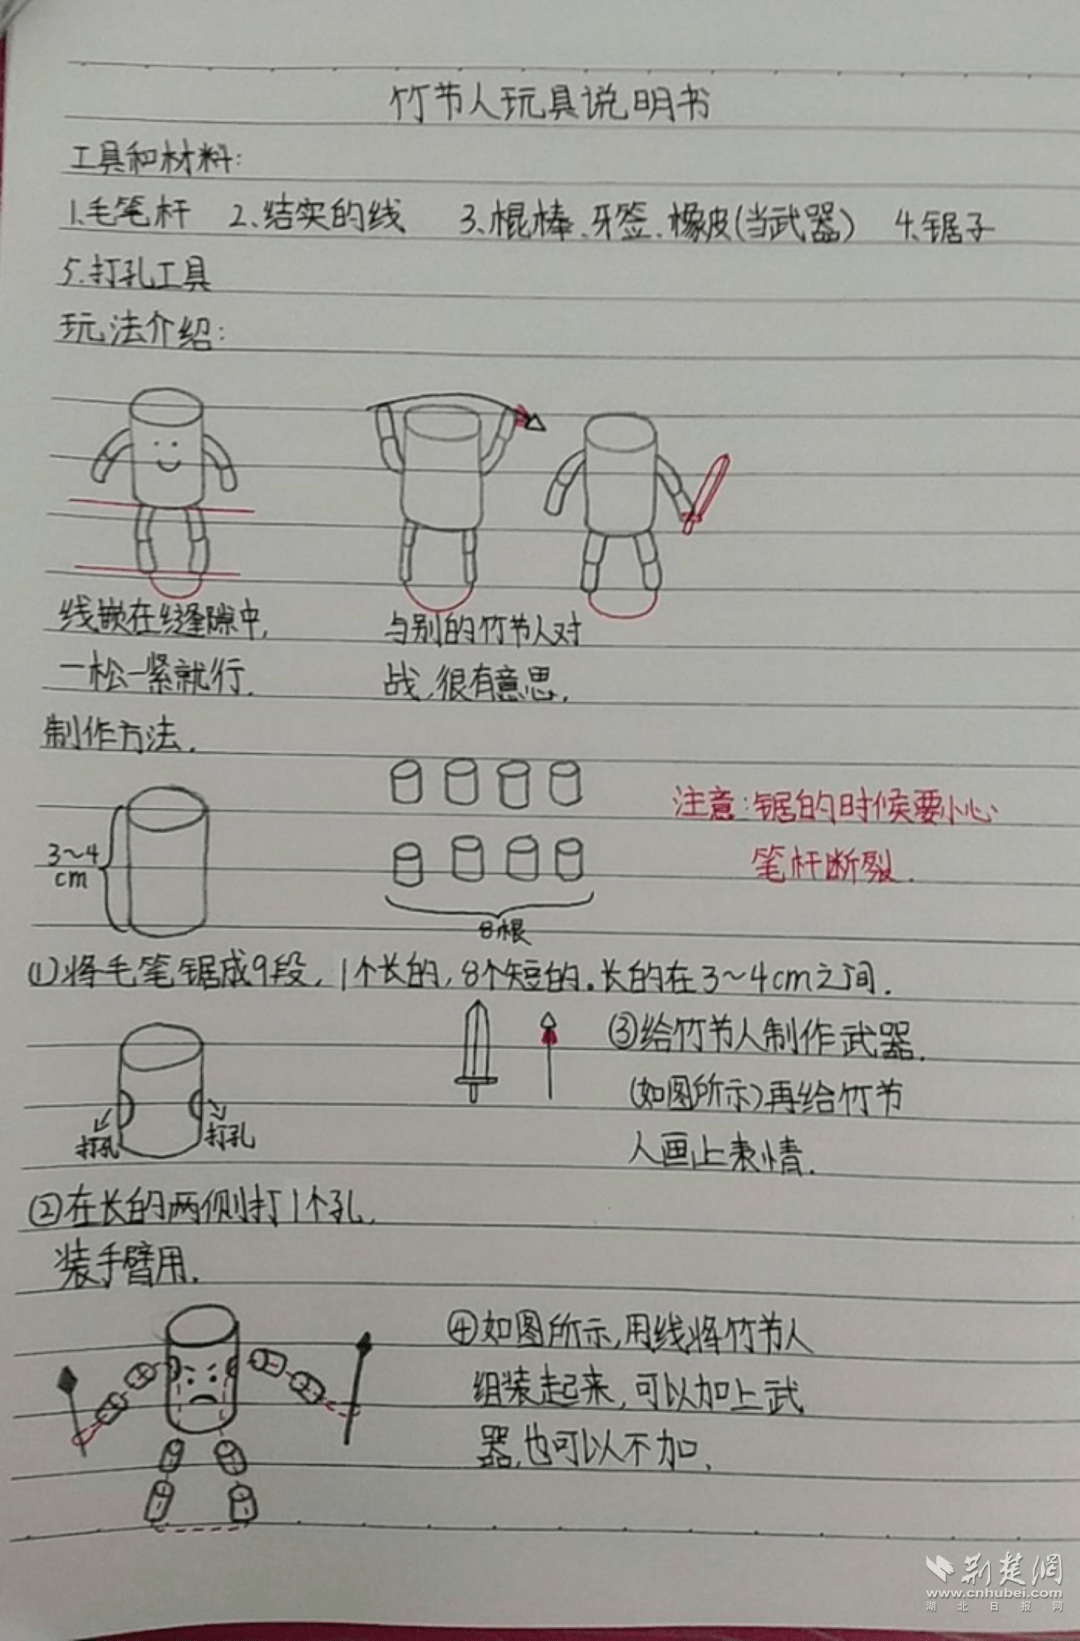 竹节人玩具说明书
工具和材料:
1.毛笔杆 2.结实的线 3.棍棒、牙签、橡皮(当武器) 4.锯子
5.打孔工具
玩法介绍:
线嵌在缝隙中,
一松一紧就行.
与别的竹节人对
战,很有意思.
制作方法.
3~4
cm
8根
注意:锯的时候要小心
笔杆断裂.
(1)将毛笔锯成9段,1个长的,8个短的。长的在3~4cm之间.
打孔
打孔
②在长的两侧打1个孔.
装手臂用.
③给竹节人制作武器.
(如图所示)再给竹节
人画上表情.
④如图所示,用线将竹节人
组装起来,可以加上武
器,也可以不加.
荆楚网
www.cnhubei.com
湖北日报网